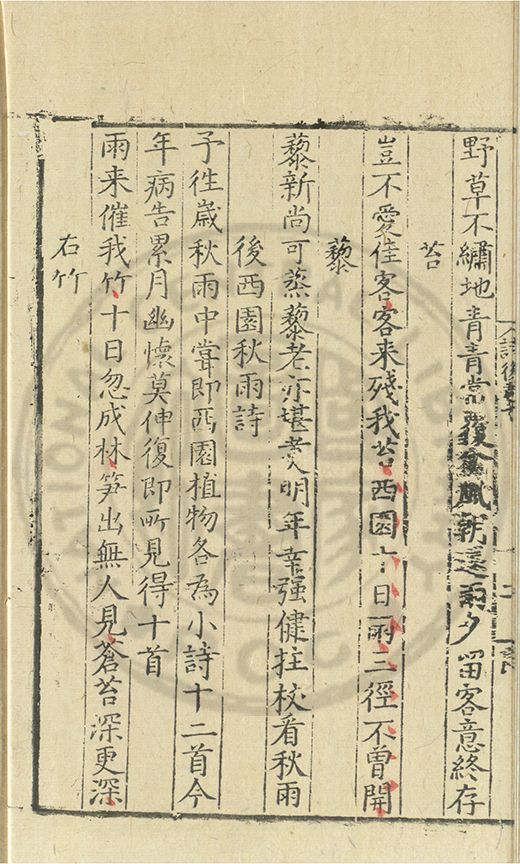 野草不繡地青青常覆盆風朝還雨夕留客意終存
苔
豈不愛佳客客来殘我苔西園十日雨三徑不曾開
藜
藜新尚可蒸藜老亦堪煮明年幸强健拄杖看秋雨
後西園秋雨詩
予徃嵗秋雨中甞即西園植物各為小詩十二首今
年病告累月幽懷莫伸復即所見得十首
雨来催我竹十日忽成林笋出無人見蒼苔深更深
右竹